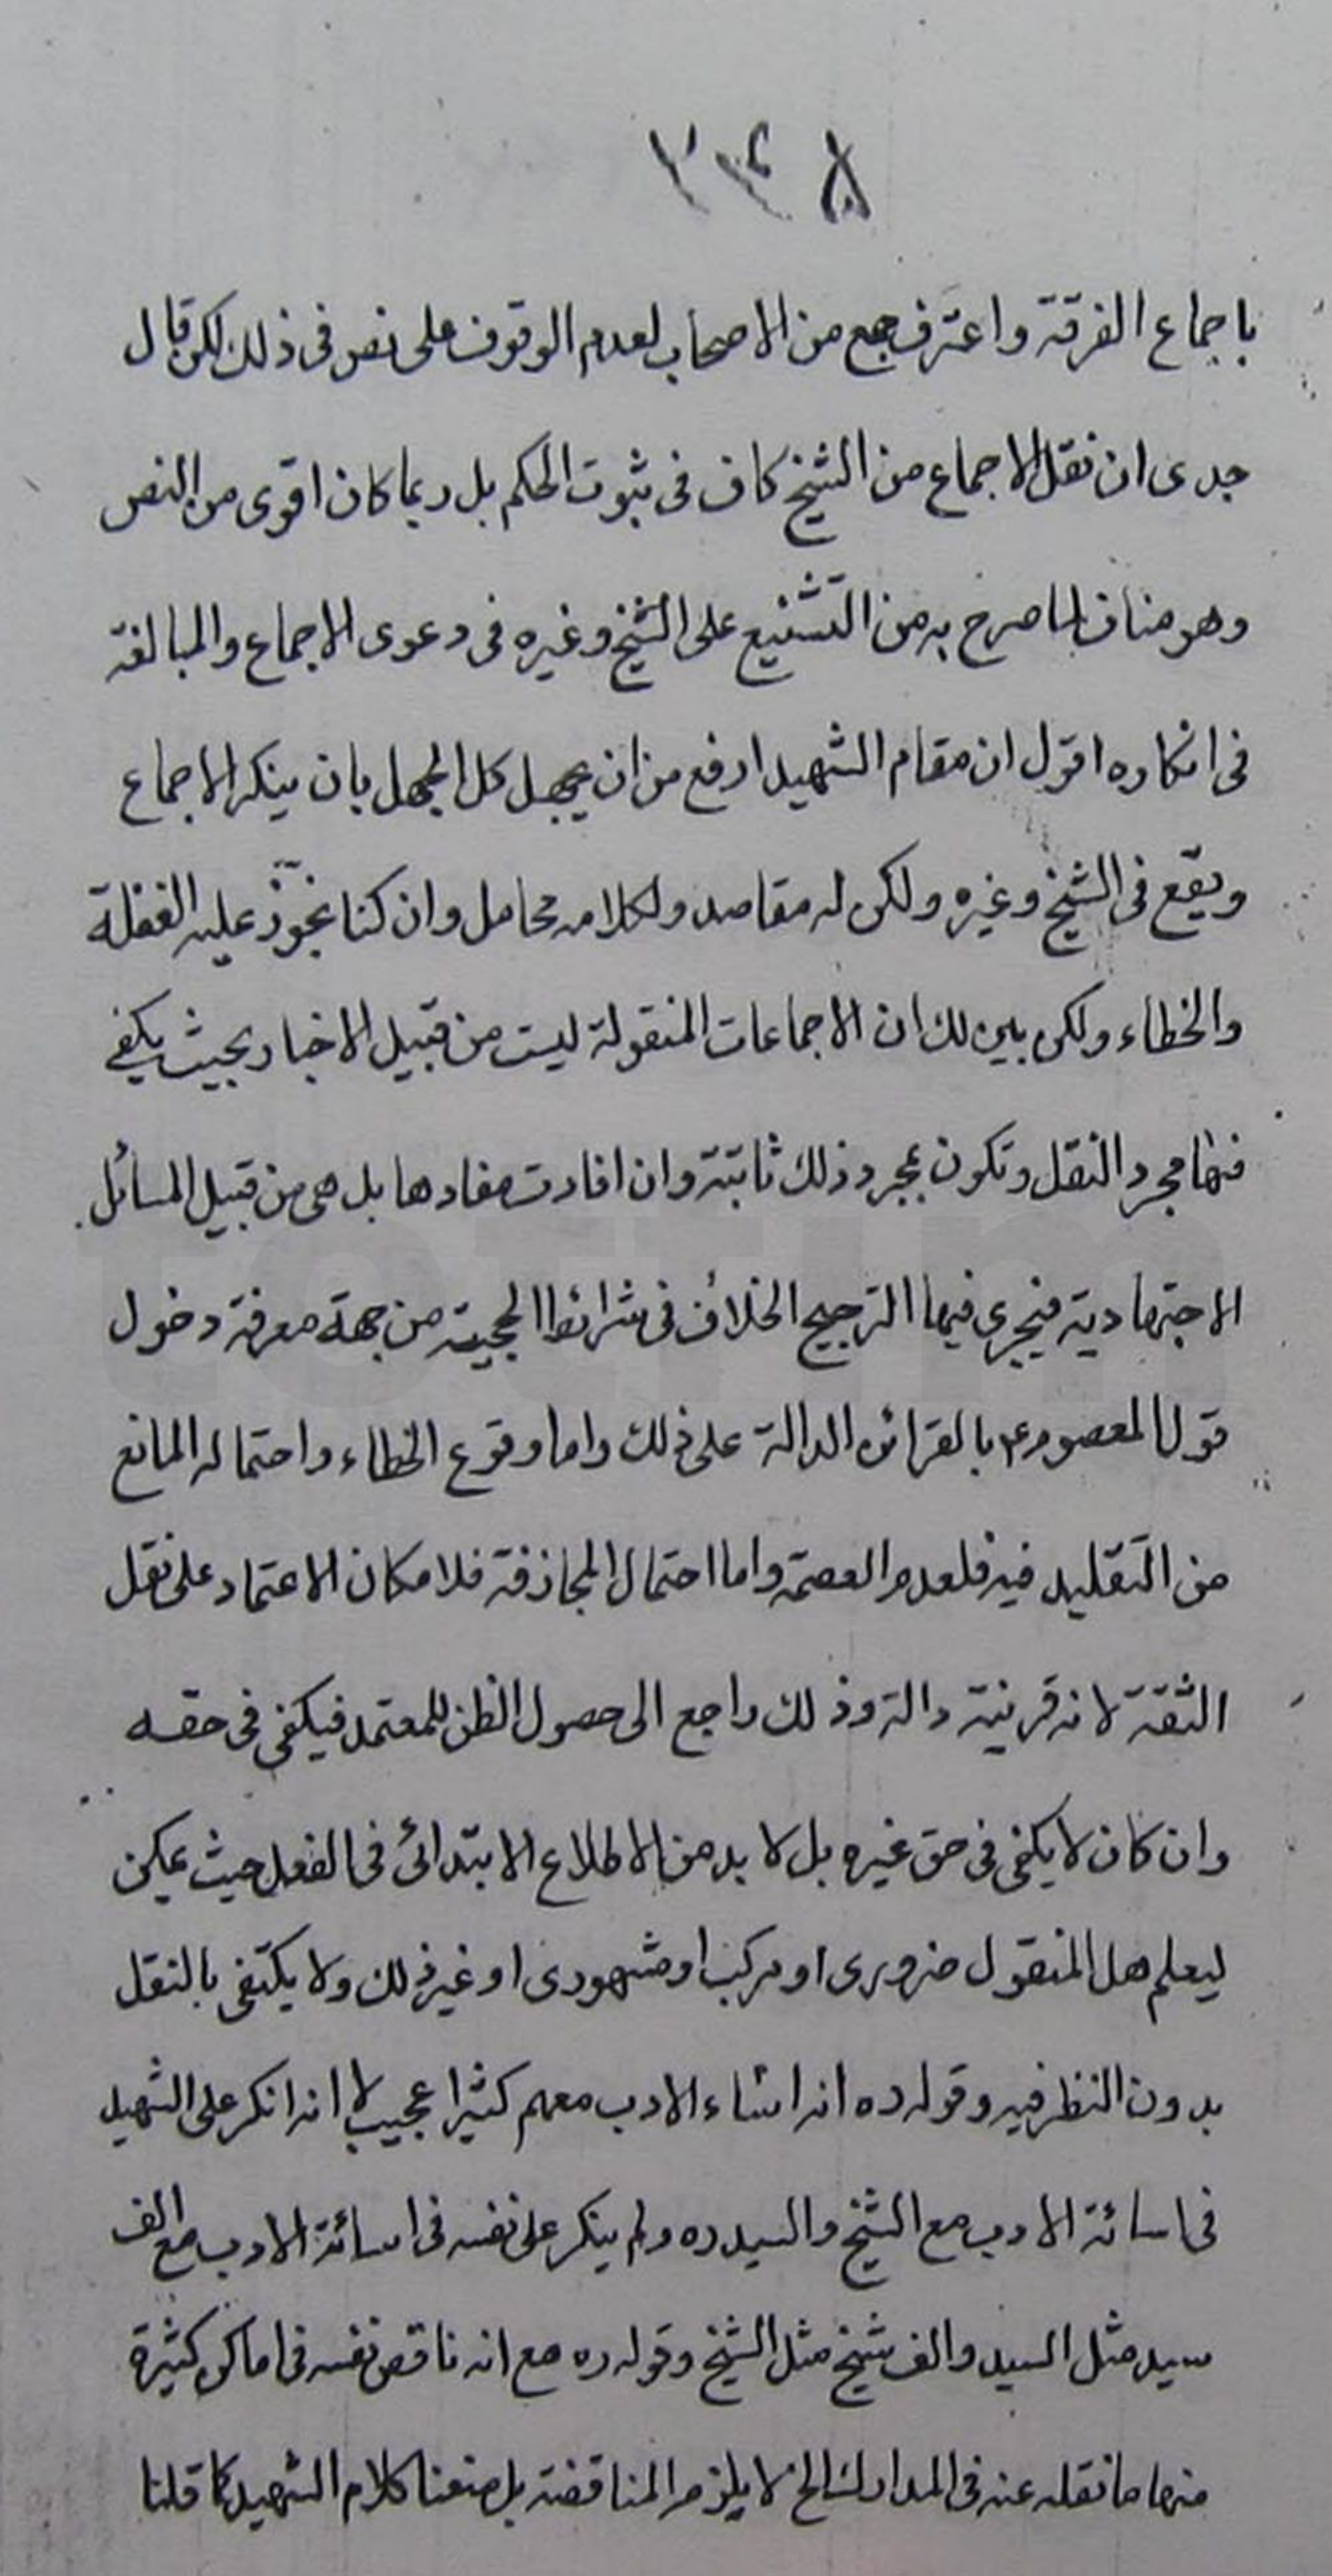 باجماع الفرقة واعترف جمع من الاصحاب لعدم الوقوف على نص فى ذلك لكن قال
جدى ان نقل الاجماع من الشيخ كاف فى ثبوت الحكم بل ربما كان اقوى من النص
وهو مناف لما صرح به من التشنيع على الشيخ وغيره فى دعوى الاجماع والمبالغة
فى انكاره اقول ان مقام الشهيد ارفع من ان يجهل كل الجهل بان ينكر الاجماع
ويقع فى الشيخ وغيره ولكن له مقاصد ولكلامه محامل وان كنا نجوّز عليه الغفلة
والخطاء ولكن بين لك ان الاجماعات المنقولة ليست من قبيل الاخبار بحيث يكفى
فيها مجرد النقل وتكون بمجرد ذلك ثابتة وان افادت مفادها بل هى من قبيل المسائل
الاجتهادية فيجرى فيها الترجيح الخلاف فى شرائط الحجية من جهة معرفة دخول
قول المعصوم ع بالقرائن الدالة على ذلك واما وقوع الخطاء واحتماله المانع
من التقليد فيه فلعدم العصمة واما احتمال المجازفة فلامكان الاعتماد على نقل
الثقة لانه قرينة دالة وذلك راجع الى حصول الظن للمعتمد فيكفى فى حقه
وان كان لا يكفى فى حق غيره بل لا بد من الاطلاع الابتدائى فى الفعل حيث يمكن
ليعلم هل المنقول ضرورى او مركب او مشهورى او غير ذلك ولا يكتفى بالنقل
بدون النظر فيه وقوله ره انه اساء الادب معهم كثيرا عجيب لانه انكر على الشهيد
فى اسائة الادب مع الشيخ والسيد ره ولم ينكر على نفسه فى اسائة الادب مع الف
سيد مثل السيد والف شيخ مثل الشيخ وقوله ره مع انه ناقض نفسه فى اماكن كثيرة
منها ما نقله عنه فى المدارك الخ لا يلزم المناقضة بل معنا كلام الشهيد كما قلنا